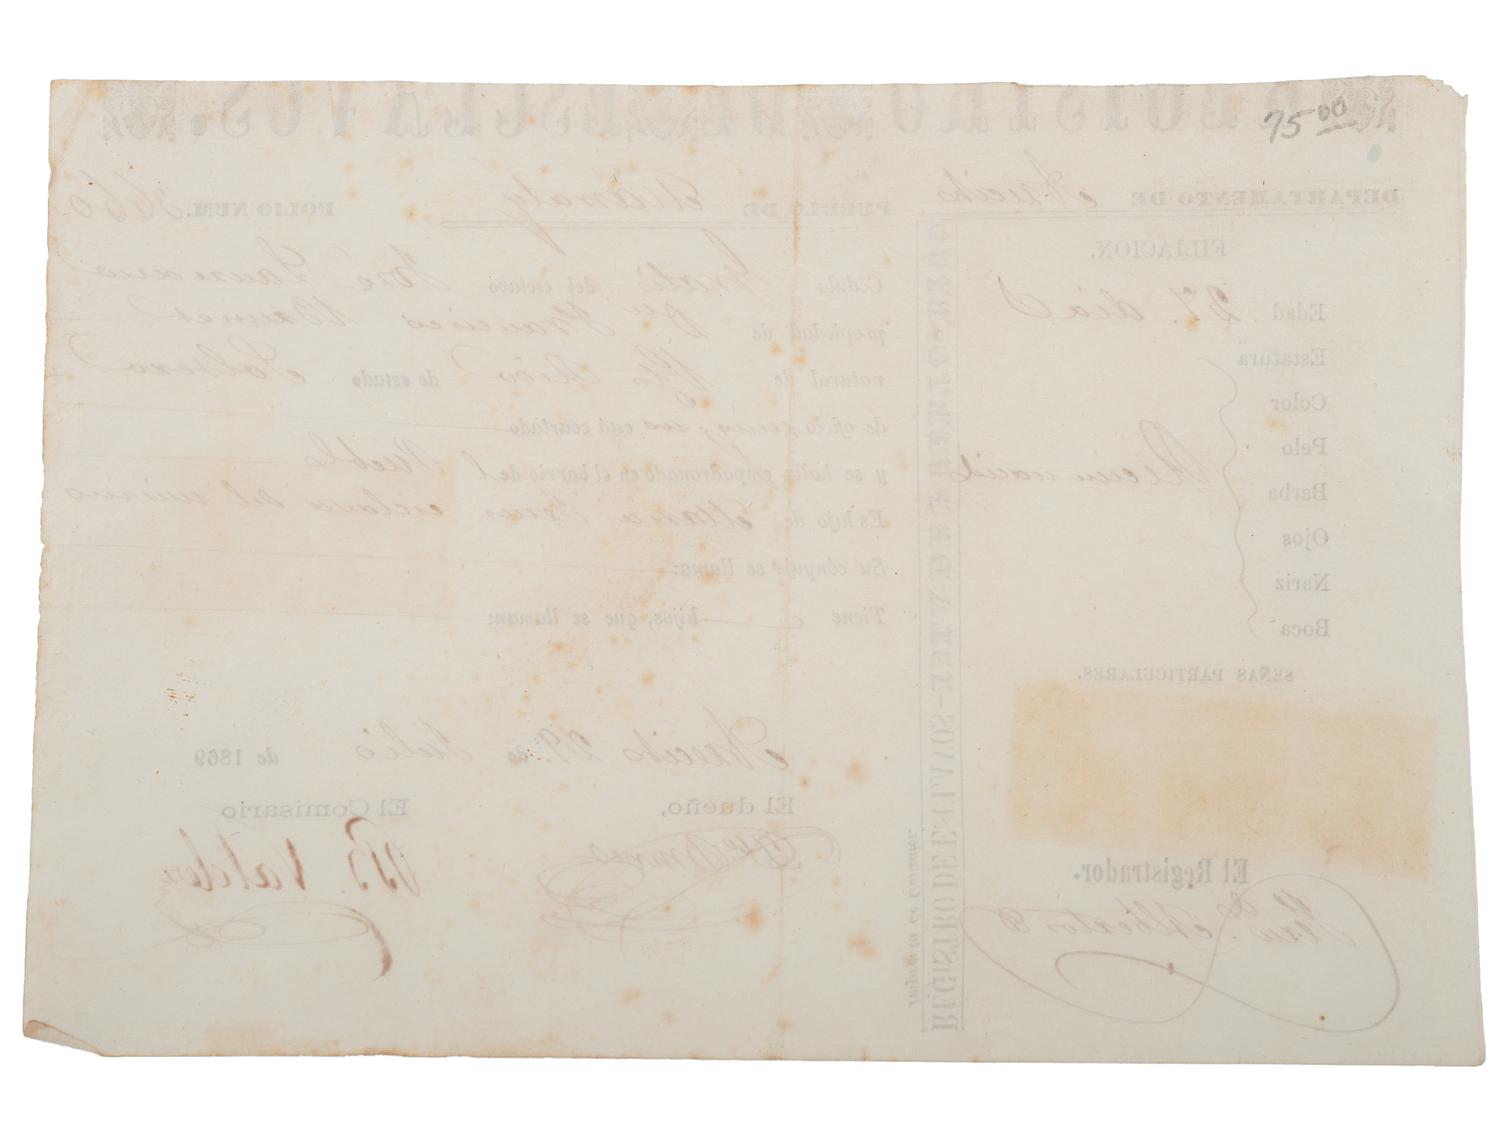 75 00
REGISTRO DE ESCLAVOS.
DEPARTAMENTO DE Arecibo PUEBLO DE Manatí FOLIO NUM. 3650
FILIACION.
Edad 27. dias
Estatura
Color
Pelo
Barba
Ojos
Nariz
Boca
Recien nacido
SEÑAS PARTICULARES.
El Registrador.
Alberto
REGISTRO DE ESCLAVOS
Imprenta de
Cedula Gratis del esclavo José
propiedad de Dn Francisco
natural de Pto Rico de estado Soltero
de oficio ning; no está coartado
y se halla empadronado en el barrio del Pueblo
Es hijo de Maria esclava del mismo
Su cónyuje se llama:
Tiene hijos, que se llaman:
Arecibo 29 de Julio de 1869
El dueño, El Comisario
B. Valdes